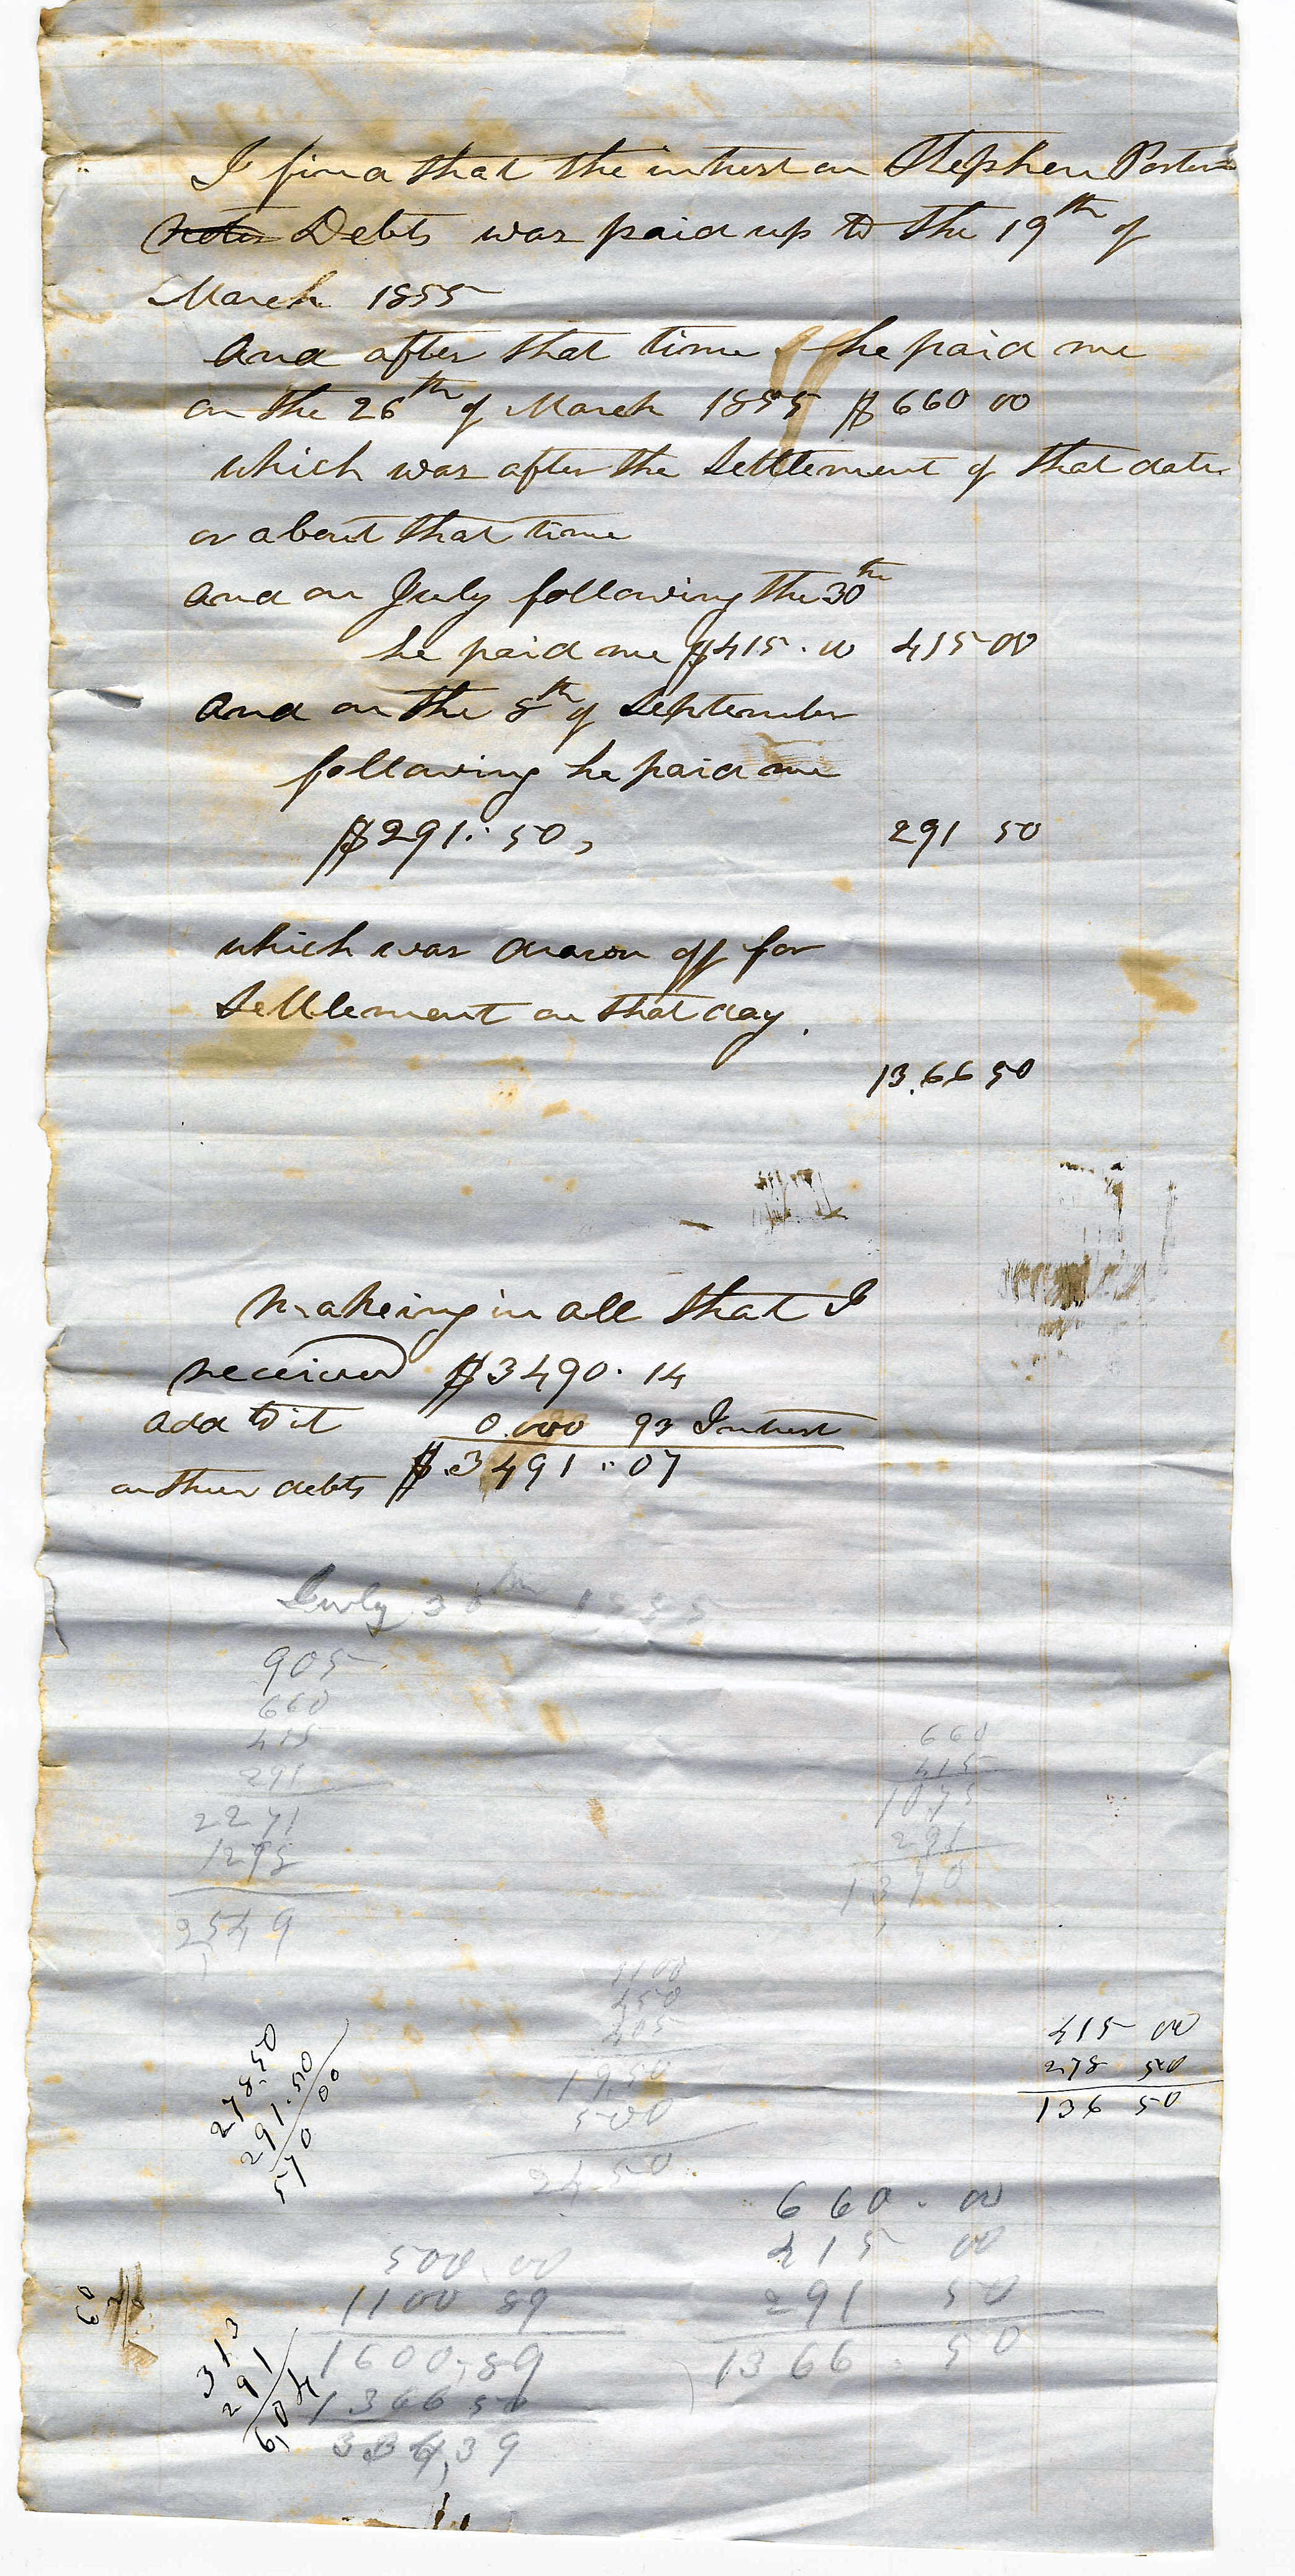 I find that the intrest on Stephen Porters
notes Debts was paid up to the 19th of
March 1855
And after that time he paid me
on the 26th of March 1855 $660 00
which was after the Settlement of that date
or about that time
and on July following the 30th
he paid me $415.00 415 00
And on the 8th of September
following he paid me
$291.50, 291 50
which was drawn off for
Settlement on that day.
13.66 50
Makeing in all that I
received $3490.14
add to it 0.000 93 Intrest
on their debts $.3491.07
July 30th 1855
905
660
415
291
2271
1278
2549
660
415
1075
291
13
1100
450
405
19.50
500
24.50
415 00
278 50
136 50
278.50
291.50
570 00
660.00
415 00
291 50
1366.50
500.00
1100 89
1600.89
1366 50
334,39
60
313
291
604